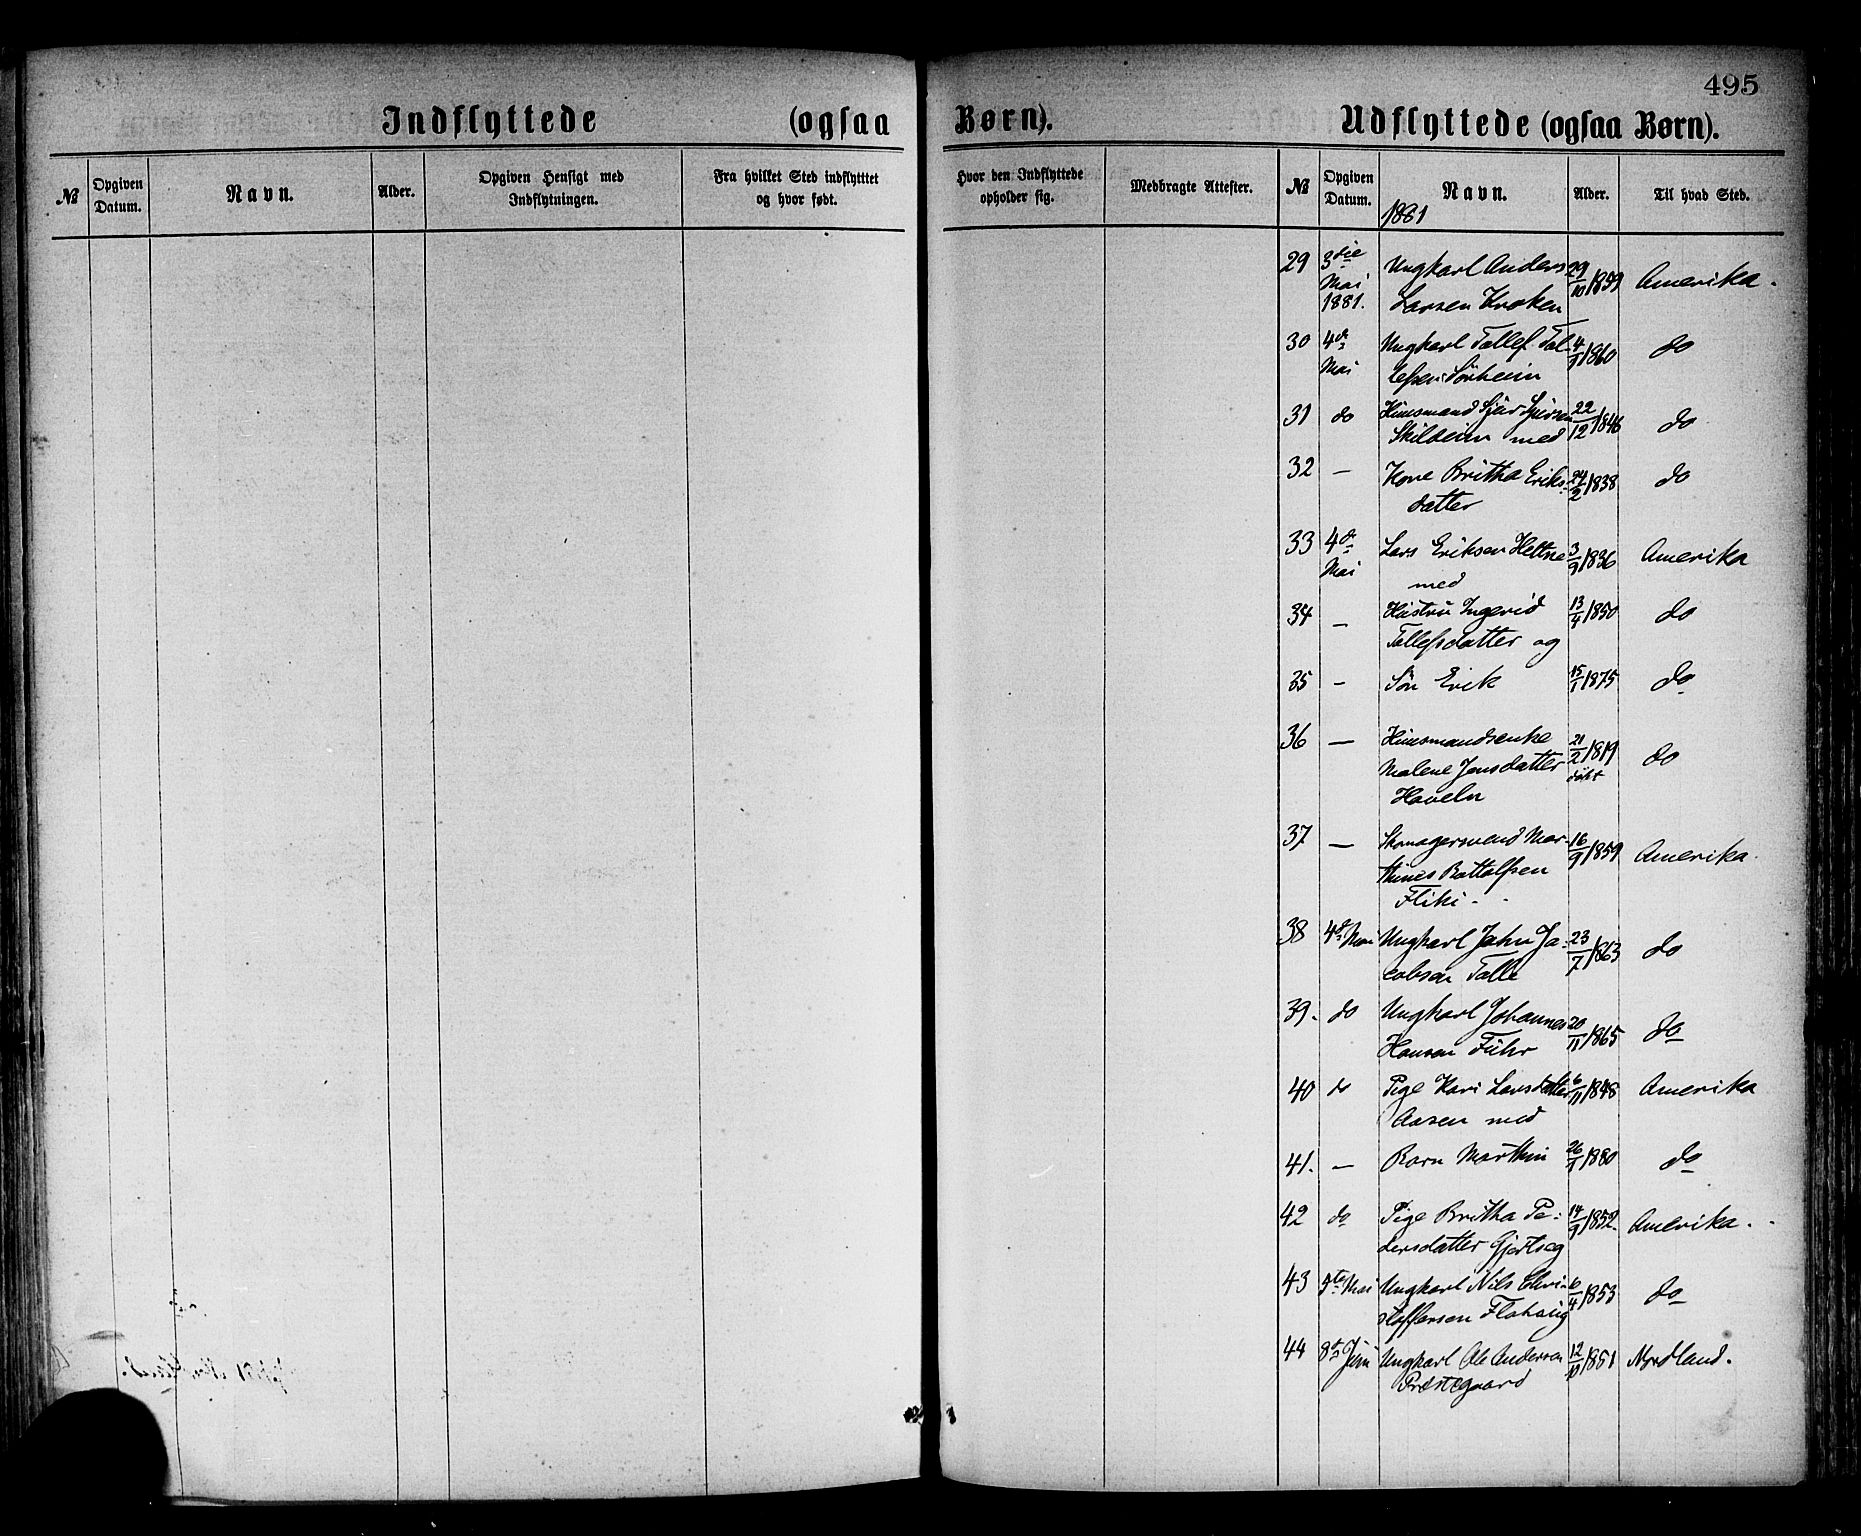 495
Indflyttede (ogsaa Børn).
Udflyttede (ogsaa Børn).
№ Opgiven Datum. Navn. Alder. Opgiven Hensigt med Indflytningen. Fra hvilket Sted indflytttet og hvor født. Hvor den Indflyttede opholder sig. Medbragte Attester.
№ Opgiven Datum. Navn. Alder. Til hvad Sted.
1881
29 3die Mai 1881. Ungkarl Anders 29/10 1859 Amerika.
Larsen Kroken
30 4de Mai Ungkarl Tollef Tol- 4/9 1860 do
lefsen Sørheim
31 do Huusmand Sjur Sjursen 22/12 1846 do
Skilbein med
32 — Kone Britha Eriks- 24/2 1838 do
datter
33 4de Mai Lars Eriksen Hettne 3/9 1836 Amerika
med
34 — Hustru Ingerid 13/4 1850 do
Tollefsdatter og
35 - Søn Erik 15/1 1875 do
36 — Huusmandsenke 21/2 1819 døbt do
Malene Jonsdatter
Haveln
37 — Skomagersvend Mar- 16/9 1859 Amerika.
thines Bottolfsen
Fliki.
38 4de Mai Ungkarl John Ja- 23/7 1863 do
cobsen Talle
39. do Ungkarl Johannes 20/11 1865 do
Hansen Fuhr
40 do Pige Kari Larsdatter 6/11 1848 Amerika
Aasen med
41. — Barn Marthin 26/1 1880 do
42 do Pige Britha Pe- 14/9 1852. Amerika.
dersdatter Gjertseg
43 9te Mai Ungkarl Nils Chri- 6/4 1853 do
stoffersen Flahaug
44 8te Juni Ungkarl Ole Andersen 12/10 1851 Nordland.
Præstegaard